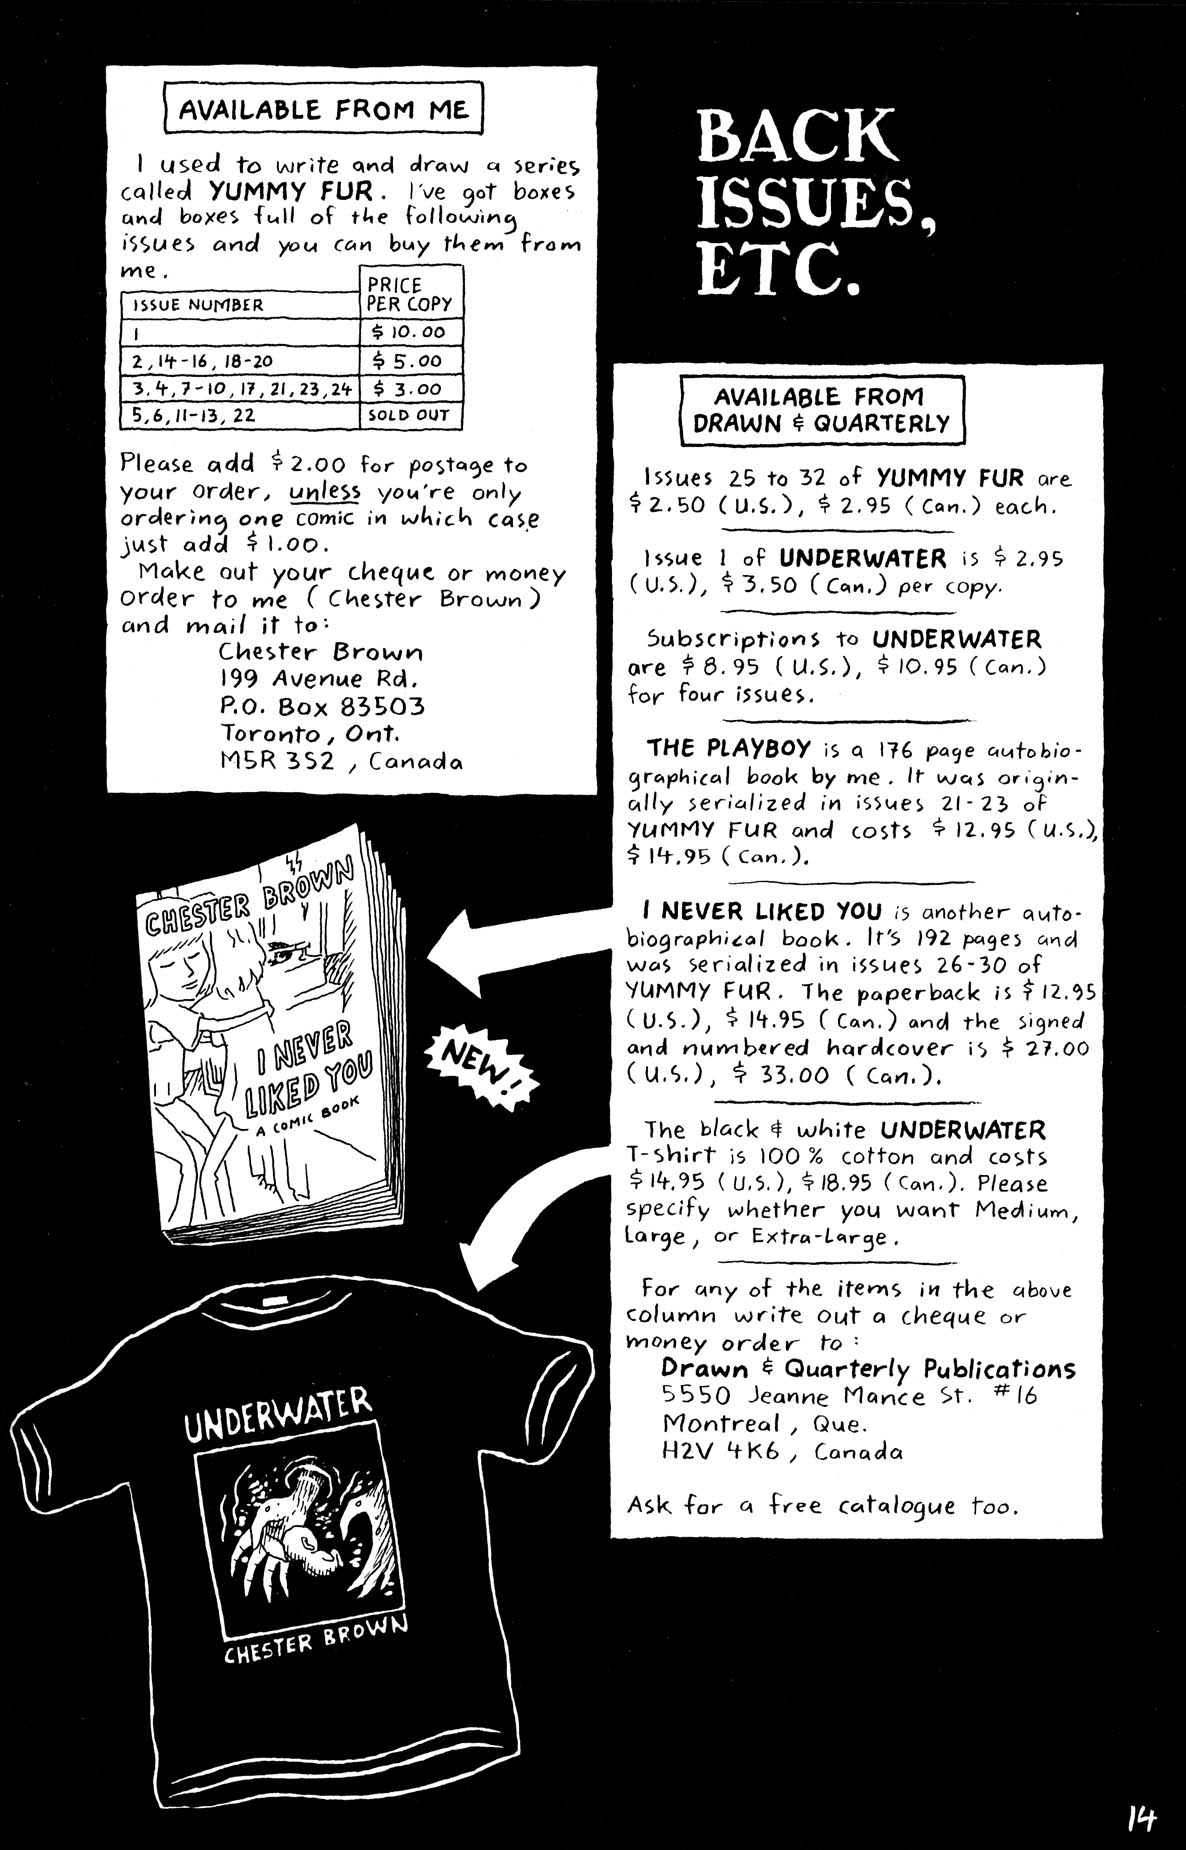 AVAILABLE FROM ME
I used to write and draw a series
called YUMMY FUR. I've got boxes
and boxes full of the following
issues and you can buy them from
me.
ISSUE NUMBER PRICE PER COPY
1 $10.00
2, 14-16, 18-20 $5.00
3, 4, 7-10, 17, 21, 23, 24 $3.00
5, 6, 11-13, 22 SOLD OUT
Please add $2.00 for postage to
your order, unless you're only
ordering one comic in which case
just add $1.00.
Make out your cheque or money
order to me (Chester Brown)
and mail it to:
Chester Brown
199 Avenue Rd.
P.O. Box 83503
Toronto, Ont.
M5R 3S2, Canada
BACK
ISSUES,
ETC.
AVAILABLE FROM
DRAWN & QUARTERLY
Issues 25 to 32 of YUMMY FUR are
$2.50 (U.S.), $2.95 (Can.) each.
Issue 1 of UNDERWATER is $2.95
(U.S.), $3.50 (Can.) per copy.
Subscriptions to UNDERWATER
are $8.95 (U.S.), $10.95 (Can.)
for four issues.
THE PLAYBOY is a 176 page autobio-
graphical book by me. It was origin-
ally serialized in issues 21-23 of
YUMMY FUR and costs $12.95 (U.S.),
$14.95 (Can.).
I NEVER LIKED YOU is another auto-
biographical book. It's 192 pages and
was serialized in issues 26-30 of
YUMMY FUR. The paperback is $12.95
(U.S.), $14.95 (Can.) and the signed
and numbered hardcover is $27.00
(U.S.), $33.00 (Can.).
The black & white UNDERWATER
T-shirt is 100% cotton and costs
$14.95 (U.S.), $18.95 (Can.). Please
specify whether you want Medium,
Large, or Extra-Large.
For any of the items in the above
column write out a cheque or
money order to:
Drawn & Quarterly Publications
5550 Jeanne Mance St. #16
Montreal, Que.
H2V 4K6, Canada
Ask for a free catalogue too.
CHESTER BROWN
I NEVER
LIKED YOU
A COMIC BOOK
NEW!
UNDERWATER
CHESTER BROWN
14